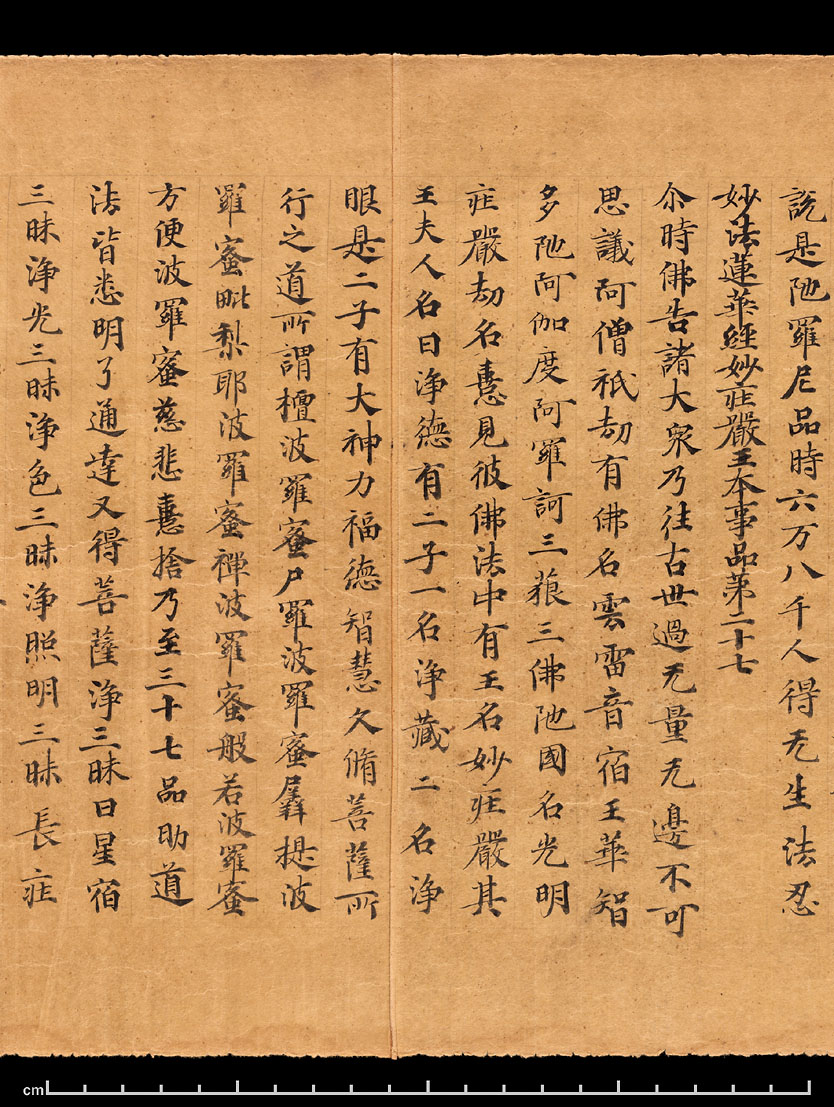 說是陁羅尼品時六万八千人得无生法忍
妙法蓮華經妙莊嚴王本事品苐二十七
尒時佛告諸大衆乃往古世過无量无邊不可
思議阿僧祇劫有佛名雲雷音宿王華智
多陁阿伽度阿羅訶三藐三佛陁國名光明
莊嚴劫名憙見彼佛法中有王名妙莊嚴其
王夫人名曰淨德有二子一名淨藏二名淨
眼是二子有大神力福德智慧久脩菩薩所
行之道所謂檀波羅蜜尸羅波羅蜜羼提波
羅蜜毗梨耶波羅蜜禪波羅蜜般若波羅蜜
方便波羅蜜慈悲憙捨乃至三十七品助道
法皆悉明了通達又得菩薩淨三昧日星宿
三昧淨光三昧淨色三昧淨照明三昧長莊
cm